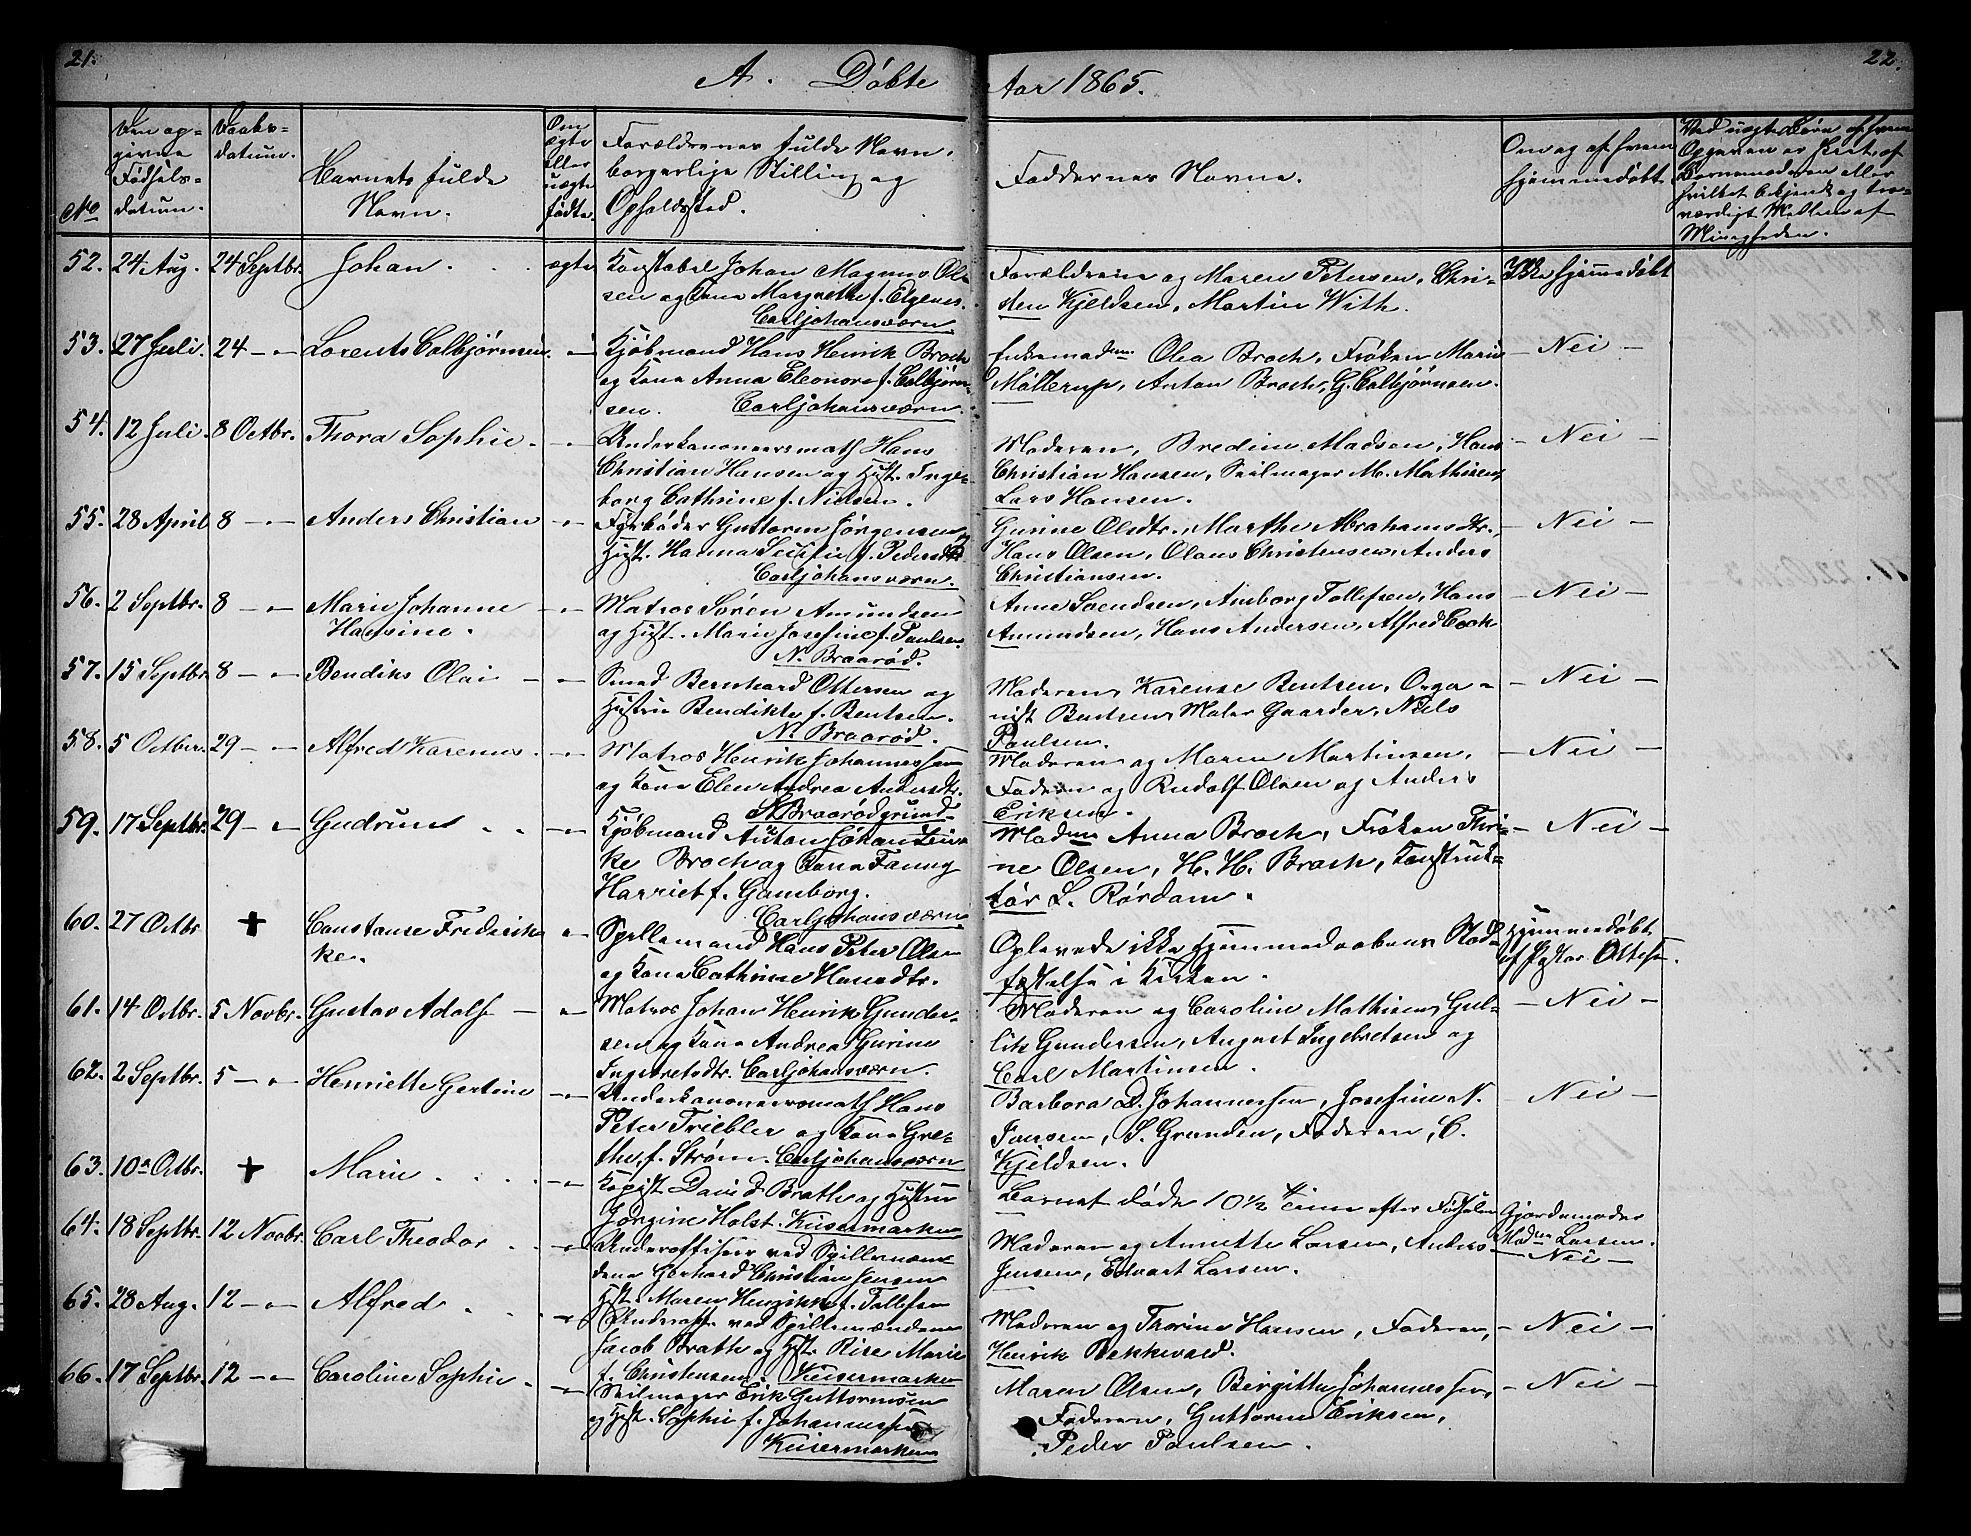 21.
22.
A. Døbte
Aar 1865.
No
Den op-
givne
Fødsels-
datum.
Daabs-
datum.
Barnets fulde
Navn.
Om
ægte
eller
uægte
fødte.
Forældrenes fulde Navn,
borgerlige Stilling og
Opholdssted.
Faddernes Navne.
Om og af hvem
hjemmedøbt
Ved uægte Børn af hvem
Opgaven er skeet, af
Barnemoderen eller
hvilket bekjendt og tro-
værdigt Mellem af
Menigheden.
52. 24 Aug. 24 Septbr. Johan. ægte
Konstabel Johan Magnus Ol-
sen og Kona Margrethe f. Elgenes.
Carljohansværn
Forældrene og Maren Petersen, Chri-
sten Kjeldsen, Martin With.
Ikke hjemmedøbt
53. 27 Juli. 24 -"- Lorents Colbjørnsen -"-
Kjøbmand Hans Henrik Broch
og Kona Anna Eleonora f. Colbjørn-
sen. Carljohansværn.
Enkemadm. Olea Broch, Frøken Marie
Møllerup, Anton Broch, G. Colbjørnsen.
- Nei -
54. 12 Juli. 8 Octbr. Thora Sophie. -"-
Underkanoneersmath Hans
Christian Hansen og Hust. Inge-
borg Cathrine f. Nielsen.
Moderen, Bredine Madsen, Hans
Christian Hansen, Seilmager M. Mathisen,
Lars Hansen.
- Nei -
55. 28 April 8 -"- Anders Christian -"-
Fyrbøder Guttorm Jørgensen og
Hust. Hanna Secilie f. Pedersdtr.
Carljohansværn.
Gurine Olsdtr., Marthe Abrahamsdtr.,
Hans Olsen, Olaus Christensen, Anders
Christiansen.
- Nei -
56. 2 Septbr. 8 -"- Marie Johanne
Hansine. -"-
Matros Søren Amundsen
og Hust. Marie Josefine f. Paulsen.
N. Braarød.
Anne Svendsen, Amborg Tollefsen, Hans
Amundsen, Hans Andersen, Alfred Cock
- Nei -
57. 15 Septbr. 8 -"- Bendiks Olai -"-
Smed Bernhard Ottersen og
Hustru Bendikte f. Bentsen.
N. Braarød.
Moderen, Karense Bentsen, Orga-
nist Bentsen, Maler Gaarder, Niels
Paulsen.
- Nei -
58. 5 Octber. 29 -"- Alfred Karenus. -"-
Matros Henrik Johannessen
og Kona Elen Andrea Andersdtr.
N. Braarødgrund
Moderen og Maren Martinsen,
Faderen og Rudolf Olsen og Anders
Eriksen.
- Nei -
59. 17 Septbr. 29 -"- Gudrun -"-
Kjøbmand Anton Johan
ke Broch og Kona Fanny
Harriet f. Gamborg.
Carljohansværn
Madme Anna Broch, Frøken Thri-
ne Olsen, H. H. Broch, Konstruk-
tør L. Rørdam.
- Nei -
60. 27 Octbr + Constanse Frederik-
ke. -"-
Spillemand Hans Peter Olsen
og Kona Cathrine Hansdtr.
Oplevede ikke Hjemmedaabens Stad-
fæstelse i Kirken.
Hjemmedøbt
af Pastor Ottesen.
61. 14 Octbr. 5 Novbr. Gustav Adolf -"-
Matros Johan Henrik Gunder-
sen og Kona Andrea Gurine
Ingebretsdtr. Carljohansværn.
Moderen og Caroline Mathisen, Gul-
lik Gundersen, August Ingebretsen og
Carl Martinsen.
- Nei -
62. 2 Septbr. 5 -"- Henriette Gertine -"-
Underkanoneersmath Hans
Peter Triebler og Kona Gre-
the, f. Strøm. Carljohansværn
Barbora D. Johannessen, Josefine N.
Jansen, S. Grunden, Faderen, C.
Kjeldsen.
- Nei -
63. 10de Octbr. + Marie -"-
Kopist David Brath og Hustru
Jørgine Holst. Keisermarken
Barnet døde 10 1/2 Time efter Fødselen
Gjordemoder
Madme Larsen.
64. 18 Septbr. 12 Novbr. Carl Theodor -"-
Underofficier ved Spillemæn-
dene Gerhard Christian Jensen
Hst. Maren Henrikke f. Tollefsen
Moderen og Annette Larsen, Anders
Jensen, Edvart Larsen.
- Nei -
65. 28 Aug. 12 -"- Alfred -"-
Underoff. ved Spillemændene
Jacob Brath og Hst. Rise Marie
f. Christensen. Keisermarken
Moderen og Thorine Hansen, Faderen,
Henrik Bekkevald.
- Nei -
66. 17 Septbr. 12 -"- Caroline Sophie. -"-
Seilmager Erik Guttormsen
og Hst. Sophie f. Johannessen
Keisermarken
Maren Olsen, Birgitte Johannessen,
Faderen, Guttorm Eriksen,
Peder Paulsen.
- Nei -